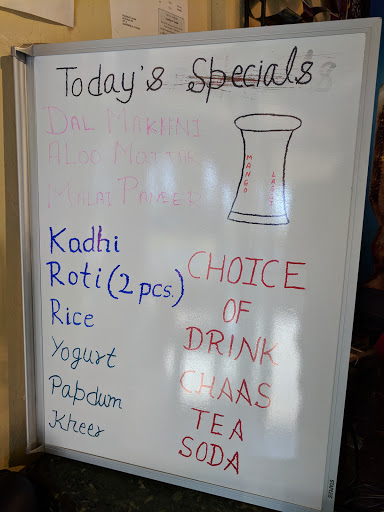 Today's Specials
DAL MAKHNI
ALOO MOTTAR
MALAI PANEER
MANGO
LASSI
Kadhi
Roti (2 pcs.)
Rice
Yogurt
Papdum
Kheer
CHOICE
OF
DRINK
CHAAS
TEA
SODA